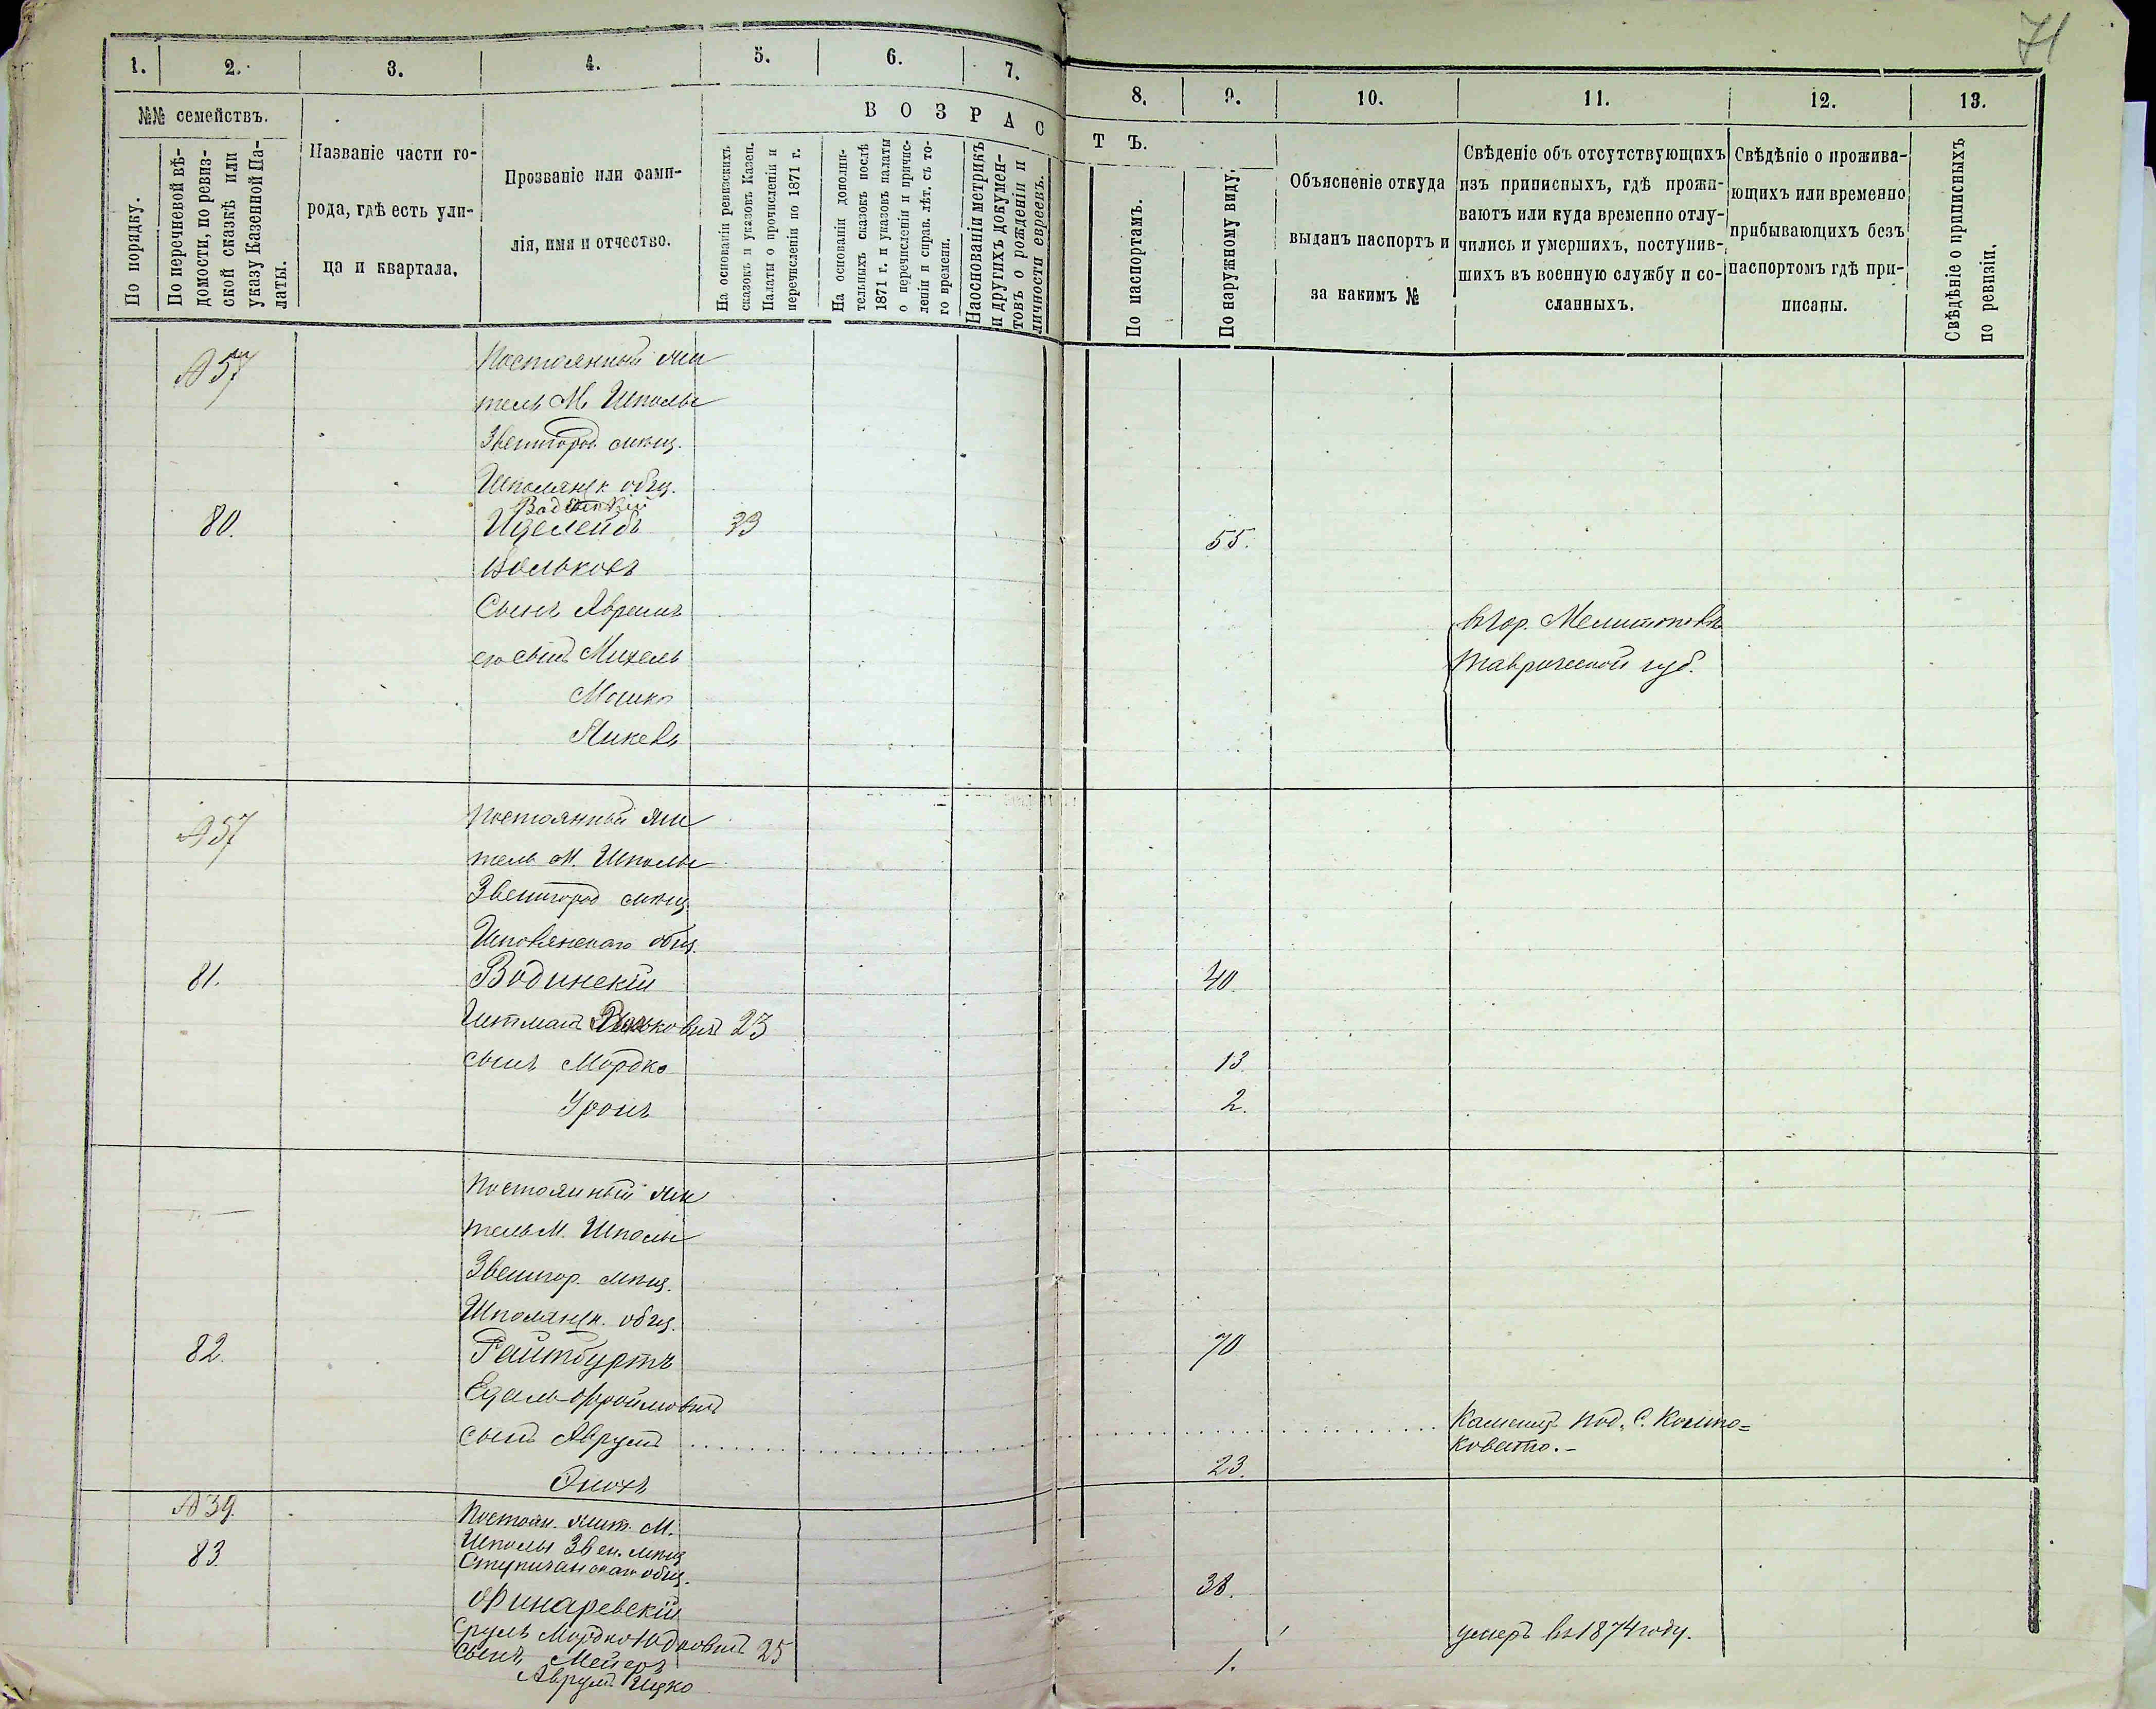 71
1. 2. 3. 4. 5. 6. 7. 8. 9. 10. 11. 12. 13.
№№ семействъ.
По порядку.
По перечневой вѣ-
домости, по ревиз-
ской сказкѣ или
указу Казенной Па-
латы.
Названіе части го-
рода, гдѣ есть ули-
ца и квартала.
Прозваніе или фами-
лія, имя и отчество.
ВОЗРАСТЪ.
На основаніи ревизскихъ
сказокъ и указовъ Казен.
Палаты о прочисленіи и
перечисленіи по 1871 г.
На основаніи дополни-
тельныхъ сказокъ послѣ
1871 г. и указовъ палаты
о перечисленіи и причис-
леніи и справ. лѣт. съ то-
го времени.
На основаніи метрикъ
и другихъ докумен-
товъ о рожденіи и
личности евреевъ.
По паспортамъ.
По наружному виду.
Объясненіе откуда
выданъ паспортъ и
за какимъ №
Свѣденіе объ отсутствующихъ
изъ приписныхъ, гдѣ прожи-
ваютъ или куда временно отлу-
чились и умершихъ, поступив-
шихъ въ военную службу и со-
сланныхъ.
Свѣдѣніе о прожива-
ющихъ или временно
прибывающихъ безъ
паспортомъ гдѣ при-
писаны.
Свѣдѣніе о приписныхъ
по ревизіи.
57 Постоянный жи
тель М. Шполы
Звенигород. мѣщ.
Шполянск. общ.
80. Ицелейбъ 33 55.
Вольковъ
Сынъ Авремъ
его сынъ Михель
Мошко
Янкевъ
въ гор. Мелитополѣ
Таврической губ.
57 Постоянный жи
тель М. Шполы
Звенигород мѣщ
Шполянскаго общ.
81. Водинскій 40.
Шитманъ 23
сынъ Мордко 13
Уронъ 2.
Постоянный жи
тель М. Шполы
Звенигор. мѣщ.
Шполянск. общ.
82. Райтбуртъ 70
Ецель Фроймовичъ
сынъ Аврумъ Каменец. Под. С.
Энохъ 23.
39. Постоян. жит. М.
83. Шполы Звен. мѣщ
общ.
38.
Сруль Мордко Юдковичъ 25 умеръ въ 1874 году.
сынъ Мейеръ 1.
Аврумъ Ицко